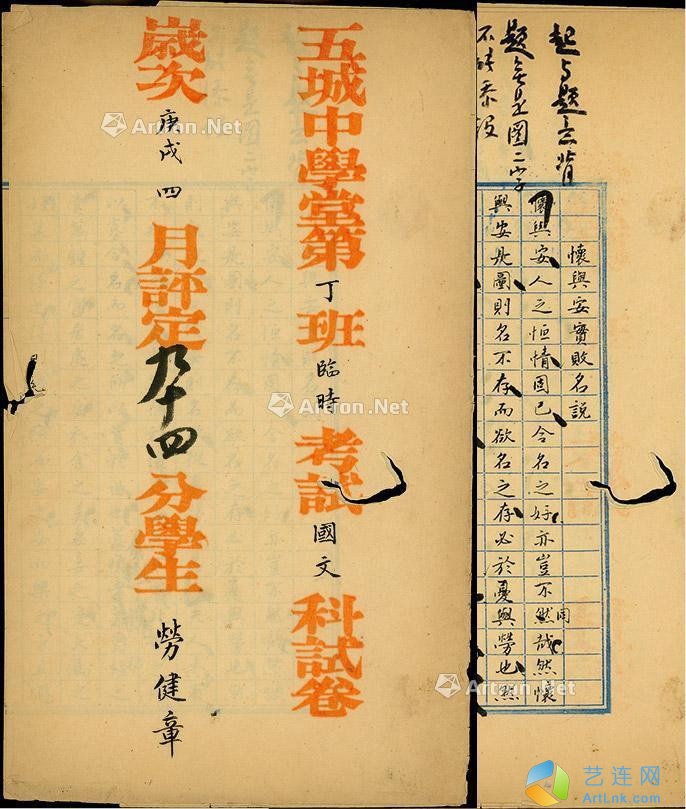 五城中學堂第丁班臨時考試國文科試卷
歲次庚戌四月評定九十四分學生勞健章
起与題意背
題是圖二字
懷與安實敗名說
懷與安人之恒情固已令名之好亦豈不然哉然懷
同
與安是圖則名不存而欲名之存必於憂與勞也然
Artron.Net
Artron.Net
Artron.Net
Artron.Net
艺连网
ArtLnk.com